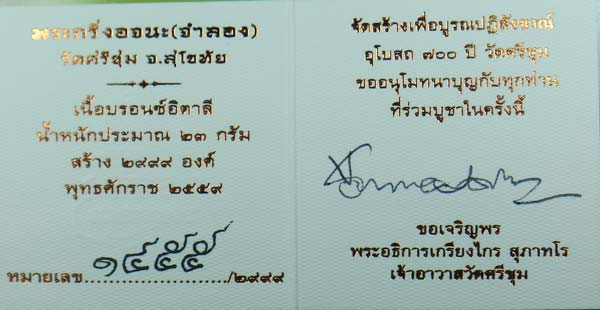 พระกริ่งอจนะ(จำลอง)
วัดศรีชุม จ.สุโขทัย
เนื้อบรอนซ์อิตาลี
น้ำหนักประมาณ ๒๓ กรัม
สร้าง ๒๙๙๙ องค์
พุทธศักราช ๒๕๕๙
หมายเลข ๑๔๕๕ /๒๙๙๙
จัดสร้างเพื่อบูรณปฏิสังขรณ์
อุโบสถ ๗๐๐ ปี วัดศรีชุม
ขออนุโมทนาบุญกับทุกท่าน
ที่ร่วมบูชาในครั้งนี้
ขอเจริญพร
พระอธิการเกรียงไกร สุภาทโร
เจ้าอาวาสวัดศรีชุม